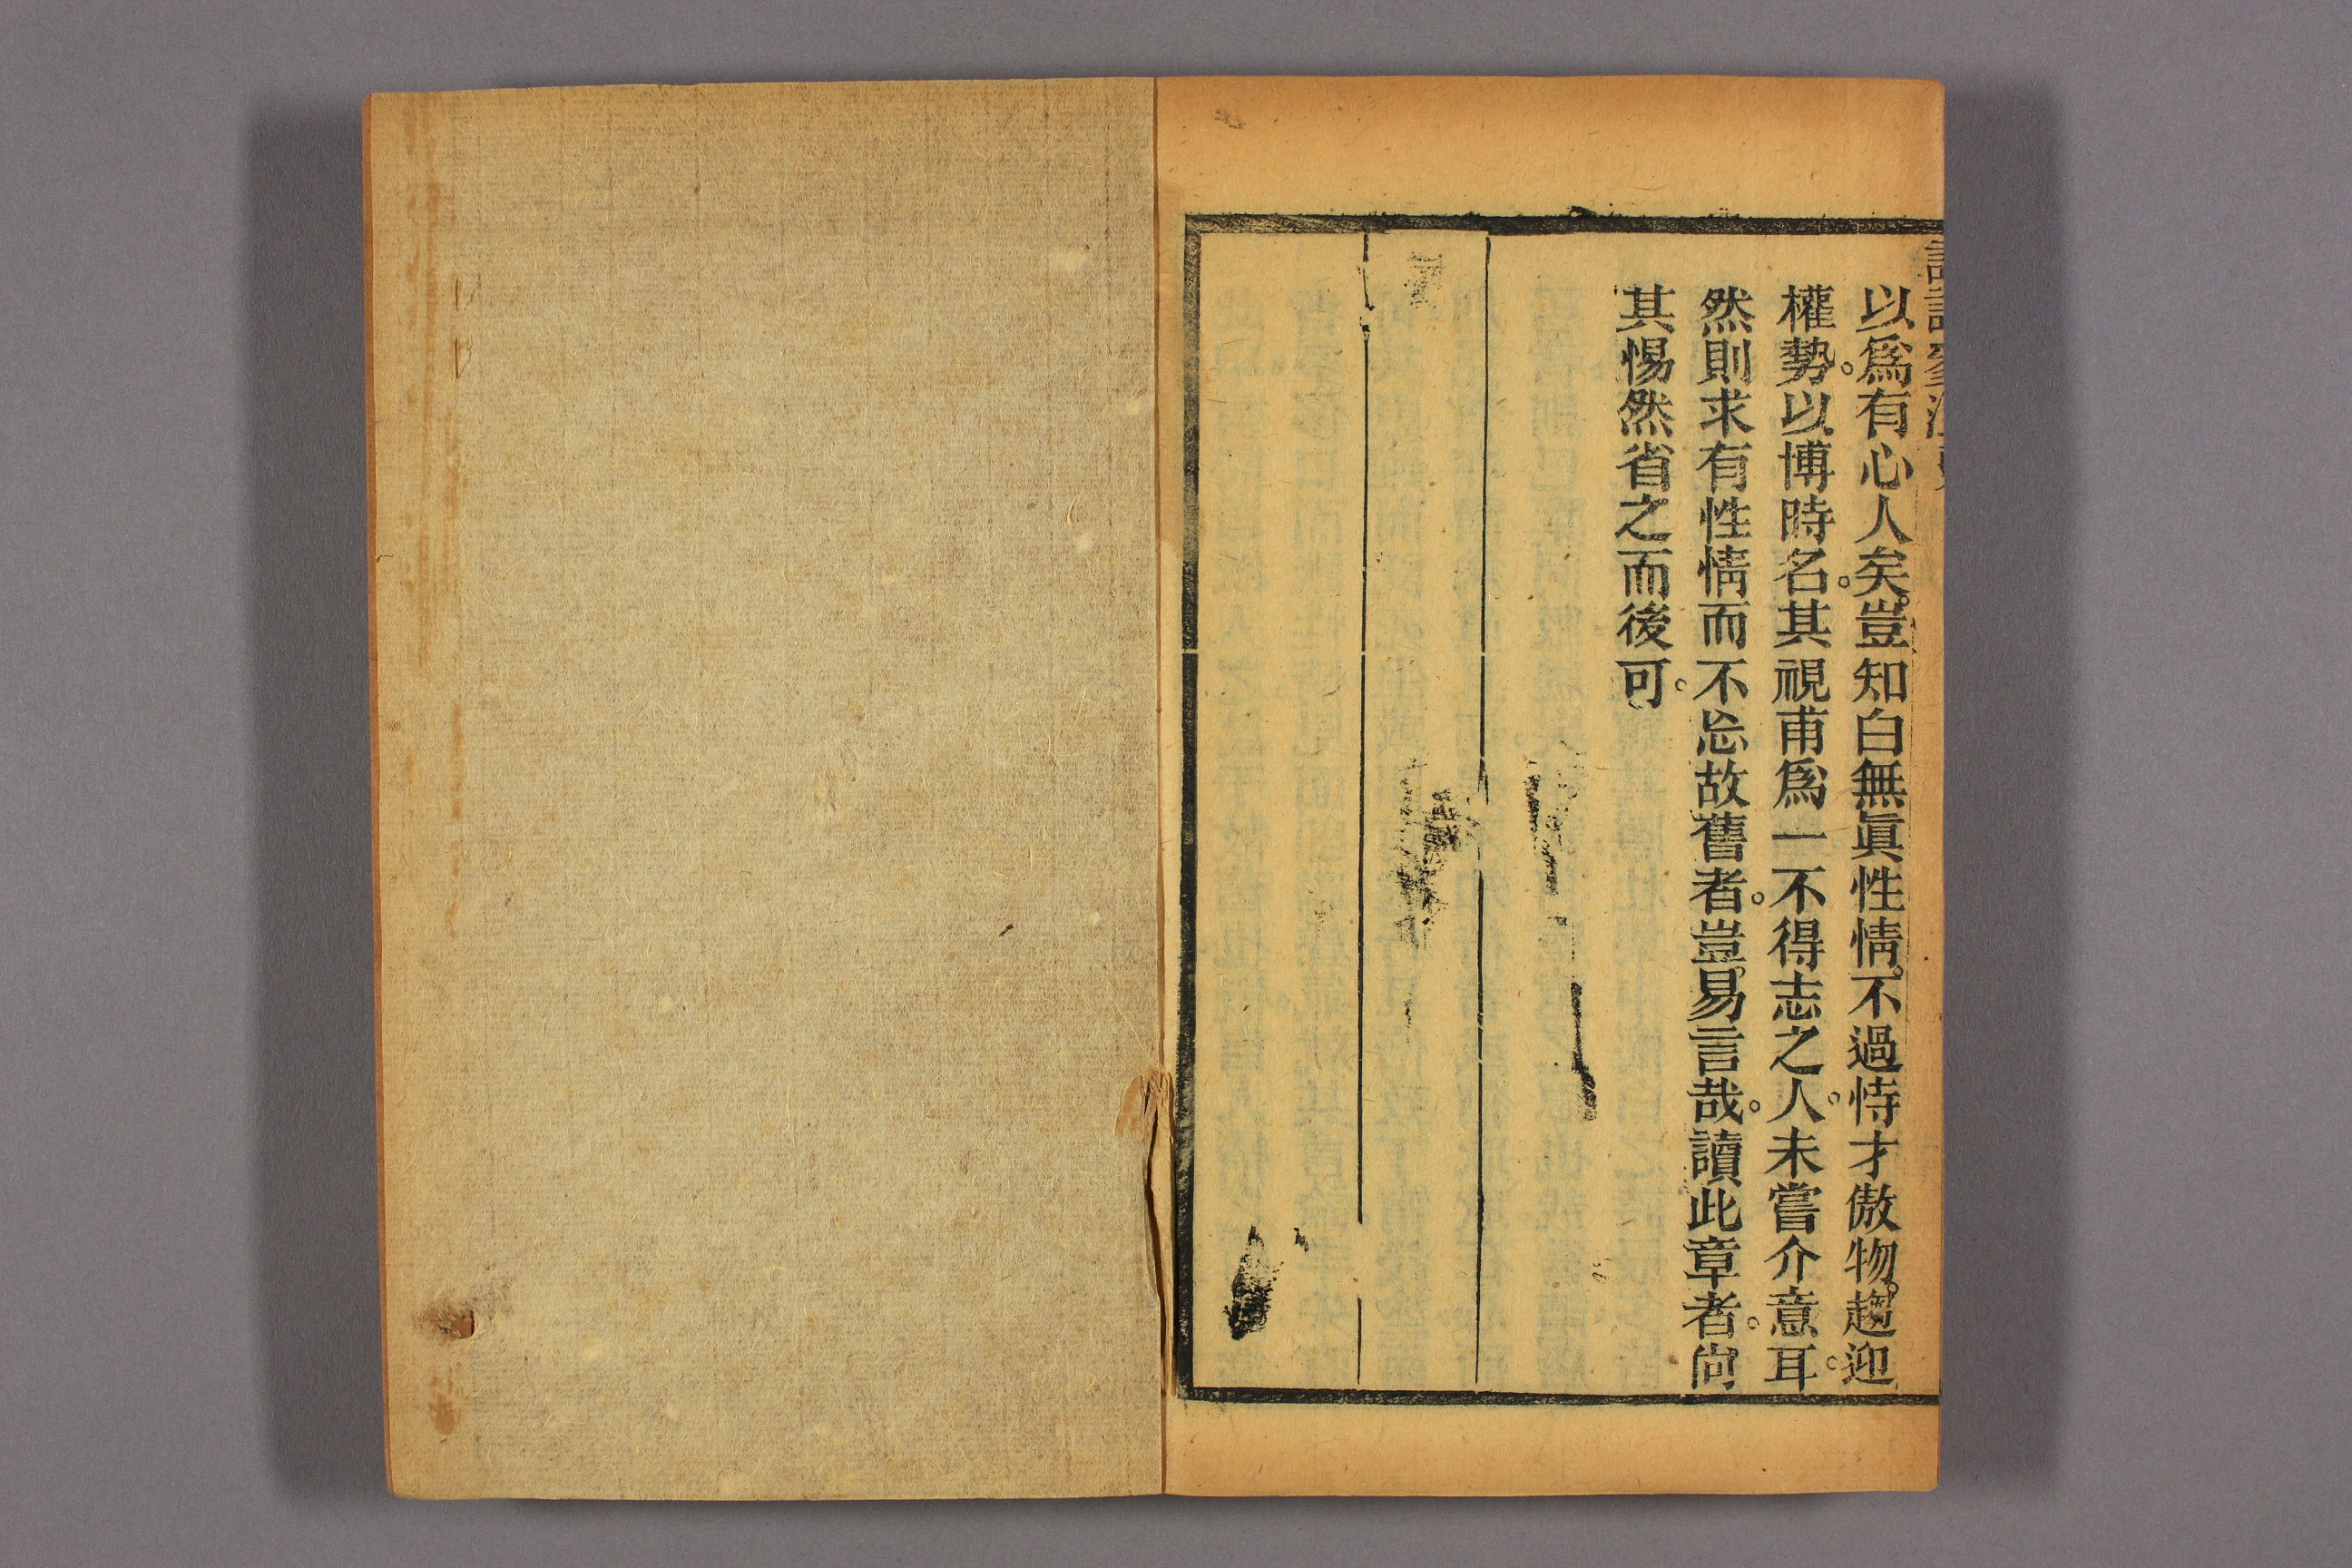 以爲有心人矣。豈知白無眞性情。不過恃才傲物。趨迎
權勢。以博時名。其視甫爲一不得志之人。未嘗介意耳。
然則求有性情而不忘故舊者。豈易言哉。讀此章者。尙
其惕然省之而後可。